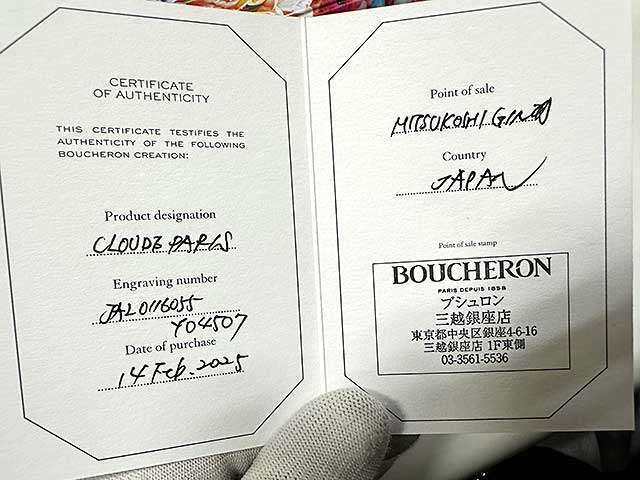 CERTIFICATE
OF AUTHENTICITY
THIS CERTIFICATE TESTIFIES THE
AUTHENTICITY OF THE FOLLOWING
BOUCHERON CREATION:
Product designation
Engraving number
JAL0116055
Y04507
Date of purchase
14 Feb. 2025
Point of sale
MITSUKOSHI
Country
JAPAN
Point of sale stamp
BOUCHERON
PARIS DEPUIS 1858
ブシュロン
三越銀座店
東京都中央区銀座4-6-16
三越銀座店 1F東側
03-3561-5536